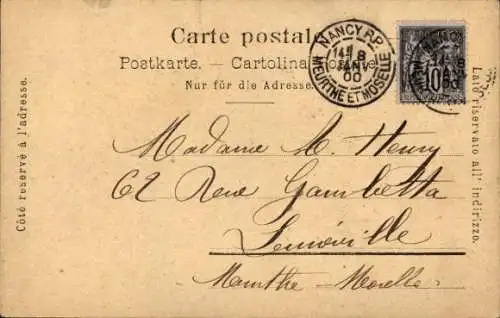 Carte postale
Postkarte. — Cartolina postale
Nur für die Adresse
NANCY R.P.
14E 8
JANV
00
MEURTHE ET MOSELLE
10
Côté reservé à l'adresse.
Lato riservato all' indirizzo.
Madame M. Henry
62 Rue Gambetta
Lunéville
Meurthe-Moselle